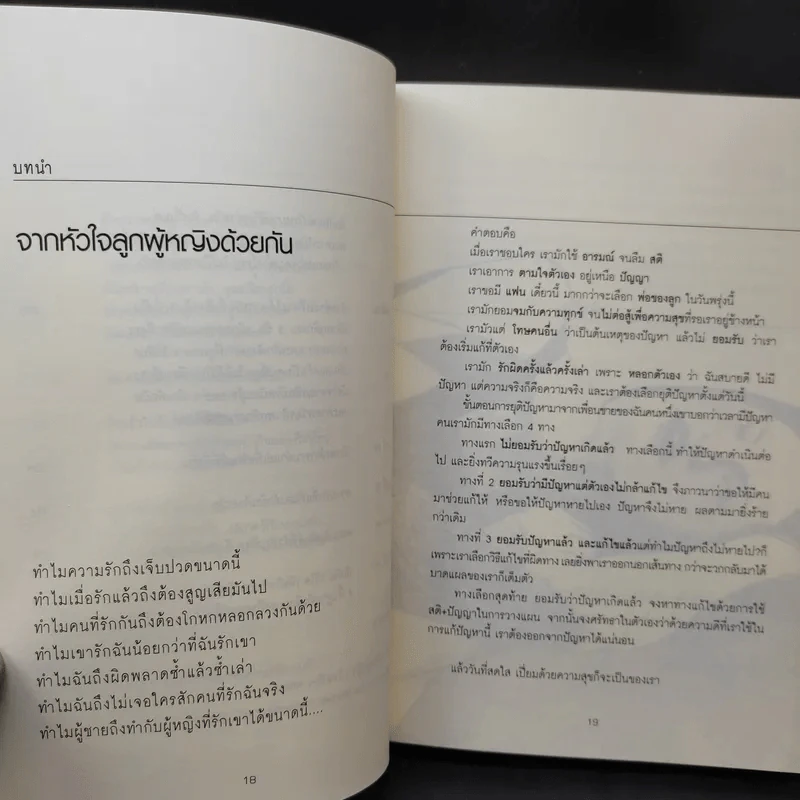 บทนำ
จากหัวใจลูกผู้หญิงด้วยกัน
ทำไมความรักถึงเจ็บปวดขนาดนี้
ทำไมเมื่อรักแล้วถึงต้องสูญเสียมันไป
ทำไมคนที่รักกันถึงต้องโกหกหลอกลวงกันด้วย
ทำไมเขารักฉันน้อยกว่าที่ฉันรักเขา
ทำไมฉันถึงผิดพลาดซ้ำแล้วซ้ำเล่า
ทำไมฉันถึงไม่เจอใครสักคนที่รักฉันจริง
ทำไมผู้ชายถึงทำกับผู้หญิงที่รักเขาได้ขนาดนี้....
18
คำตอบคือ
เมื่อเราชอบใคร เรามักใช้ อารมณ์ จนลืม สติ
เราเอาการ ตามใจตัวเอง อยู่เหนือ ปัญญา
เราขอมี แฟน เดี๋ยวนี้ มากกว่าจะเลือก พ่อของลูก ในวันพรุ่งนี้
เรามักยอมจมกับความทุกข์ จนไม่ต่อสู้เพื่อความสุขที่รอเราอยู่ข้างหน้า
เรามัวแต่ โทษคนอื่น ว่าเป็นต้นเหตุของปัญหา แล้วไม่ ยอมรับ ว่าเรา
ต้องเริ่มแก้ที่ตัวเอง
เรามัก รักผิดครั้งแล้วครั้งเล่า เพราะ หลอกตัวเอง ว่า ฉันสบายดี ไม่มี
ปัญหา แต่ความจริงก็คือความจริง และเราต้องเลือกยุติปัญหาตั้งแต่วันนี้
ขั้นตอนการยุติปัญหามาจากเพื่อนชายของฉันคนหนึ่งเขาบอกว่าเวลามีปัญหา
คนเรามักมีทางเลือก 4 ทาง
ทางแรก ไม่ยอมรับว่าปัญหาเกิดแล้ว ทางเลือกนี้ ทำให้ปัญหาดำเนินต่อ
ไป และยิ่งทวีความรุนแรงขึ้นเรื่อยๆ
ทางที่ 2 ยอมรับว่ามีปัญหาแต่ตัวเองไม่กล้าแก้ไข จึงภาวนาว่าขอให้มีคน
มาช่วยแก้ให้ หรือขอให้ปัญหาหายไปเอง ปัญหาจึงไม่หาย ผลตามมายิ่งร้าย
กว่าเดิม
ทางที่ 3 ยอมรับปัญหาแล้ว และแก้ไขแล้วแต่ทำไมปัญหาถึงไม่หายไป?ก็
เพราะเราเลือกวิธีแก้ไขที่ผิดทาง เลยยิ่งพาเราออกนอกเส้นทาง กว่าจะวกกลับมาได้
บาดแผลของเราก็เต็มตัว
ทางเลือกสุดท้าย ยอมรับว่าปัญหาเกิดแล้ว จงหาทางแก้ไขด้วยการใช้
สติ+ปัญญาในการวางแผน จากนั้นจงศรัทธาในตัวเองว่าด้วยความดีที่เราใช้ใน
การแก้ปัญหานี้ เราต้องออกจากปัญหาได้แน่นอน
แล้ววันที่สดใส เปี่ยมด้วยความสุขก็จะเป็นของเรา
19